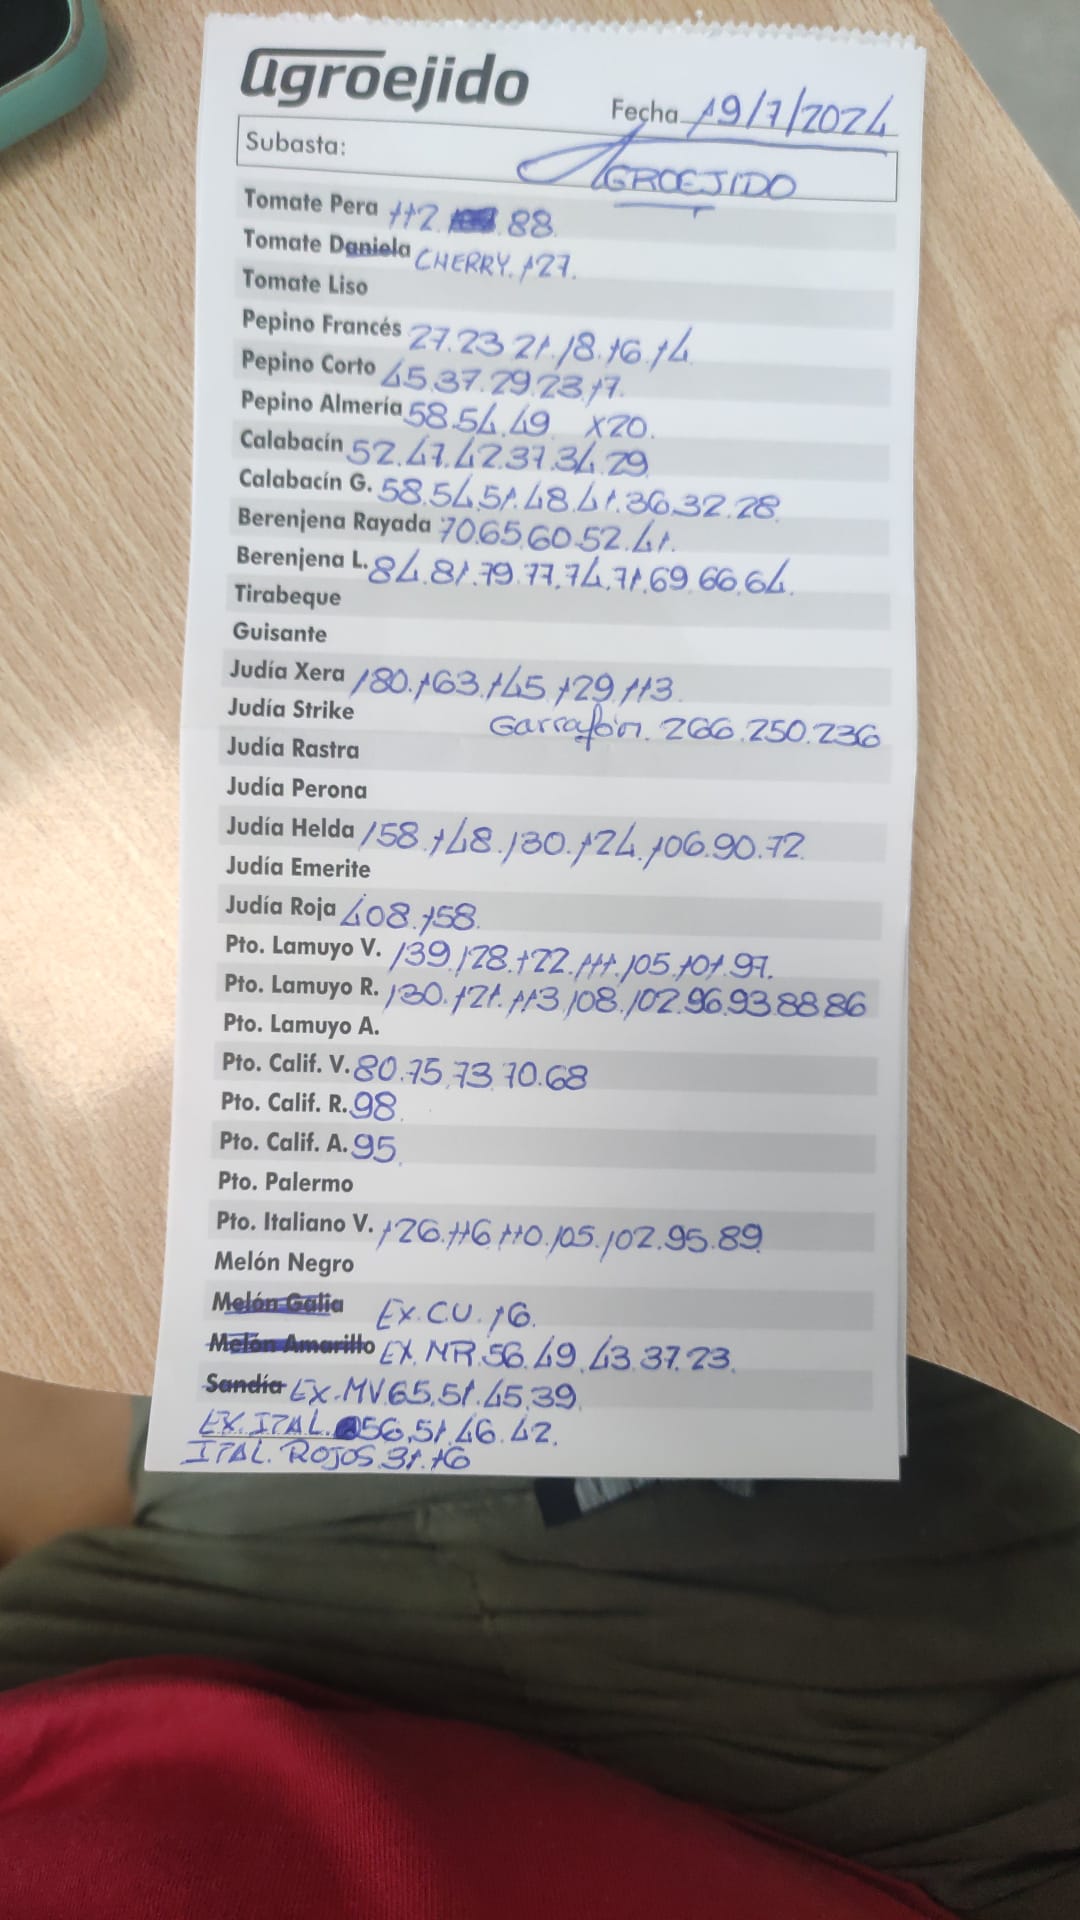 agroejido
Fecha 19/7/2024
Subasta: AGROEJIDO
Tomate Pera 112. 88.
Tomate Daniela CHERRY. 127.
Tomate Liso
Pepino Francés 27.23 21.18.16.14
Pepino Corto 45.37.29.23.17.
Pepino Almería 58.54.49 x20.
Calabacín 52.47.42.37.34.29
Calabacín G. 58.54.51.48.41.36.32.28.
Berenjena Rayada 70.65.60.52.41.
Berenjena L. 84.81.79.77.74.71.69.66.64.
Tirabeque
Guisante
Judía Xera 180.163.145.129.113.
Judía Strike Garrafón. 266.250.236
Judía Rastra
Judía Perona
Judía Helda 158.148.130.124.106.90.72.
Judía Emerite
Judía Roja 408.158.
Pto. Lamuyo V. 139.128.122.111.105.101.97.
Pto. Lamuyo R. 130.121.113.108.102.96.93.88.86
Pto. Lamuyo A.
Pto. Calif. V. 80.75.73.70.68
Pto. Calif. R. 98.
Pto. Calif. A. 95.
Pto. Palermo
Pto. Italiano V. 126.116.110.105.102.95.89.
Melón Negro
Melón Galia EX.CU.16.
Melón Amarillo EX.MR.56.49.43.37.23.
Sandía EX.MV.65.51.45.39.
EX.ITAL. 56.51.46.42.
ITAL. ROJOS 31.16